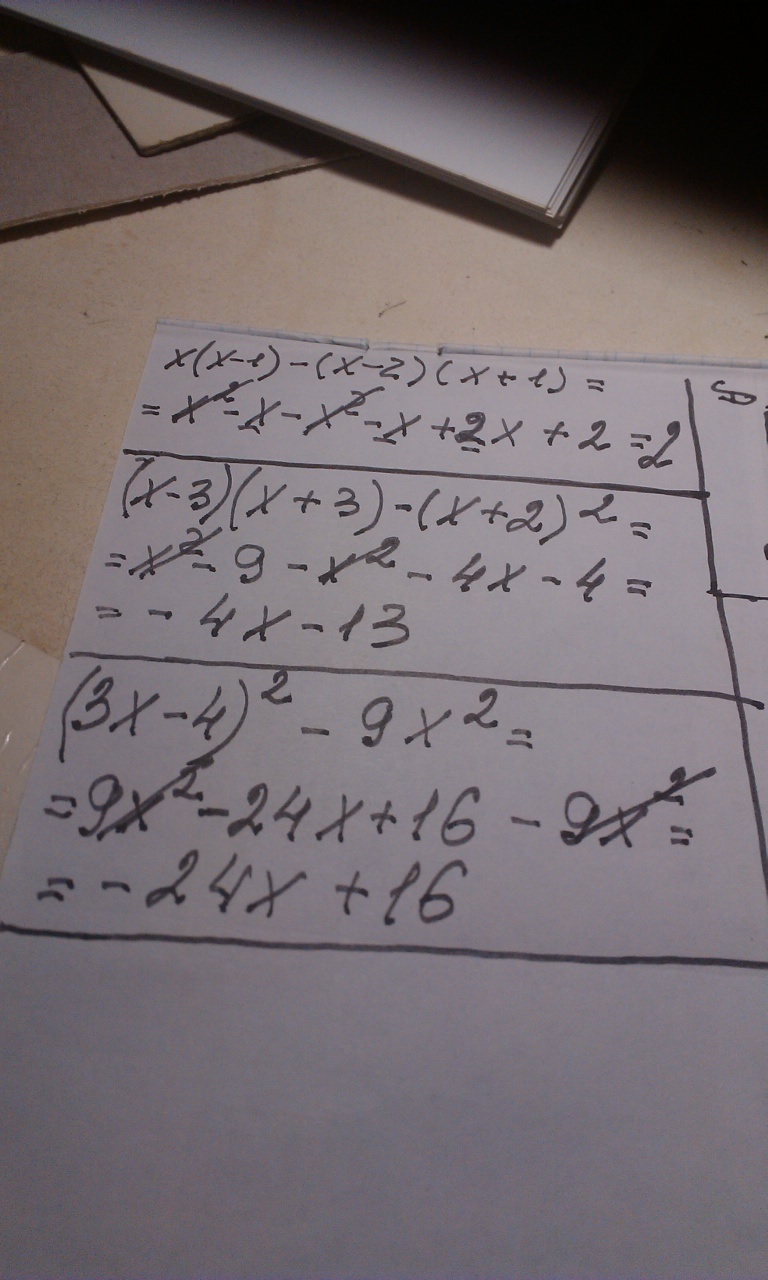 x(x-1)-(x-2)(x+1)=
=x²-x-x²-x+2x+2=2
(x-3)(x+3)-(x+2)²=
=x²-9-x²-4x-4=
=-4x-13
(3x-4)²-9x²=
=9x²-24x+16-9x²=
=-24x+16